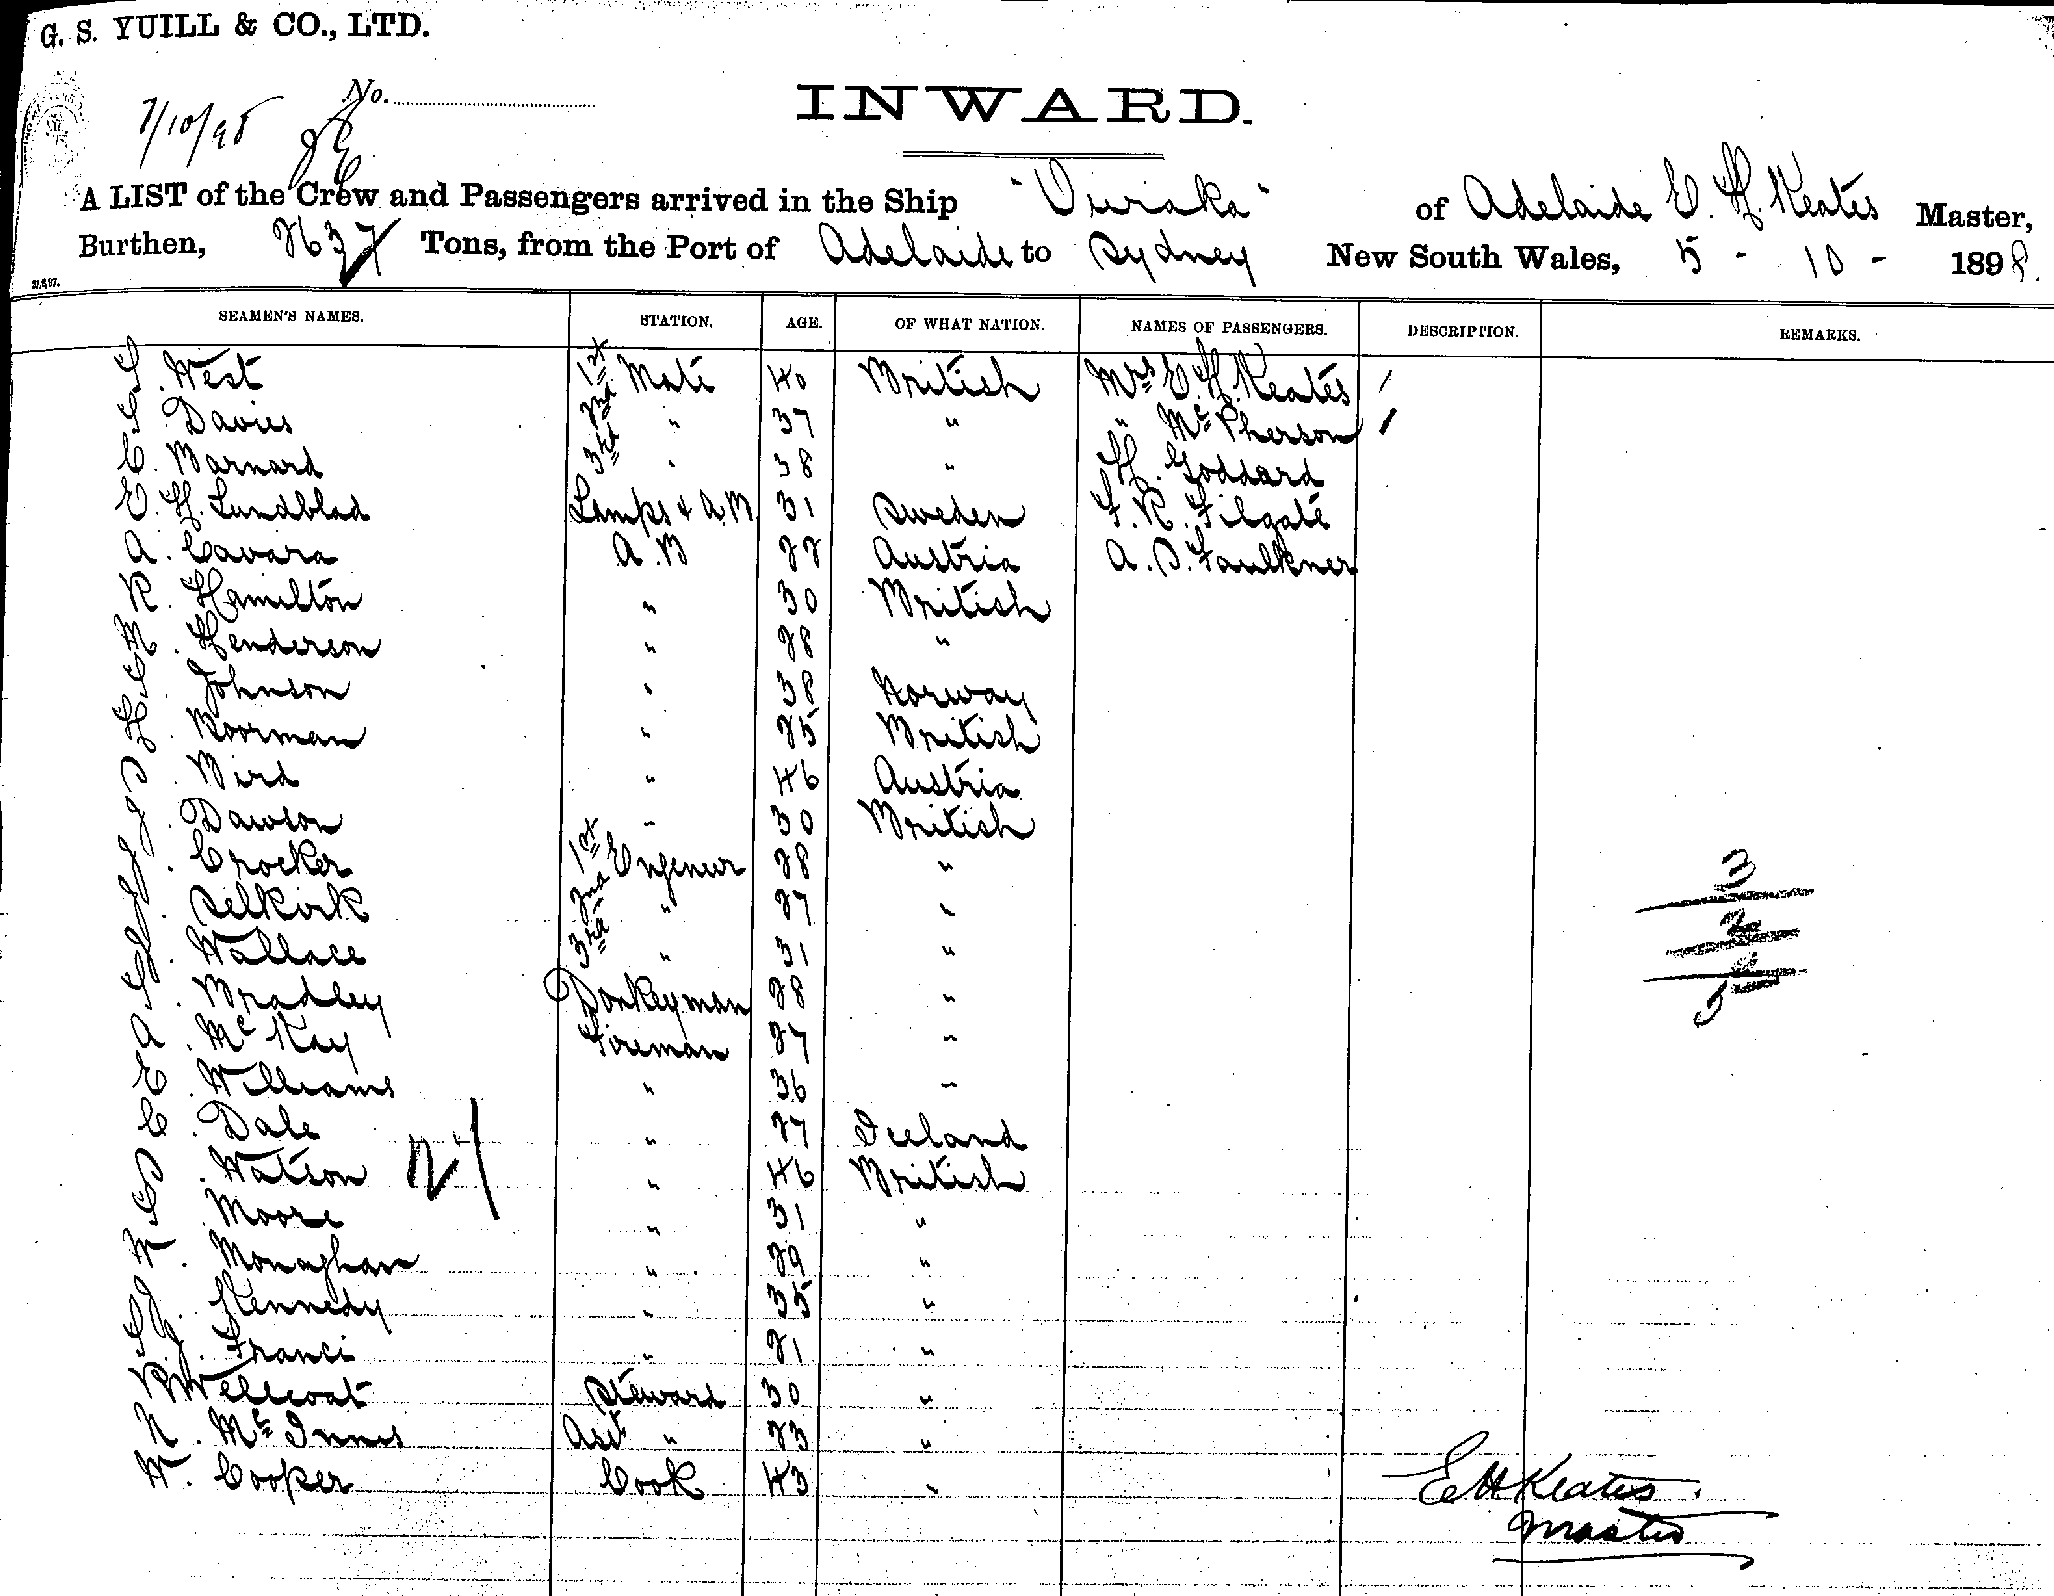 G. S. YUILL & CO., LTD.
No.
7/10/98
INWARD.
A LIST of the Crew and Passengers arrived in the Ship "Vuraka" of Adelaide E. H. Keates Master,
Burthen, 2637 Tons, from the Port of Adelaide to Sydney New South Wales, 5 - 10 - 1898.
SEAMEN'S NAMES. STATION. AGE. OF WHAT NATION. NAMES OF PASSENGERS. DESCRIPTION. REMARKS.
West 1st Mate 40 British Mrs E. H. Keates
Davies 2nd " 37 " " McPherson
C. Barnard 3rd " 38 " H. Goddard
E. H. Lundblad Lamps & A.B 31 Sweden F. R. Filgate
A. Cavara A.B 22 Austria A. S. Faulkner
R. Hamilton " 30 British
Henderson " 28 "
Johnson " 38 Norway
Boorman " 25 British
Bird " 46 Austria
Dawson " 30 British
Crocker 1st Engineer 28 "
Selkirk 2nd " 27 "
Wallace 3rd " 31 "
Bradley Donkeyman 28 "
A. McKay Fireman 27 "
E. Williams " 36 "
C. Dale " 27 Iceland
Watson " 46 British
Moore " 31 "
M. Monaghan " 29 "
Kennedy " 35 "
Franci " 21 "
Wellcoat Steward 30 "
N. McInnes Asst " 23 "
W. Cooper Cook 43 "
3
2
5
E H Keates.
Master